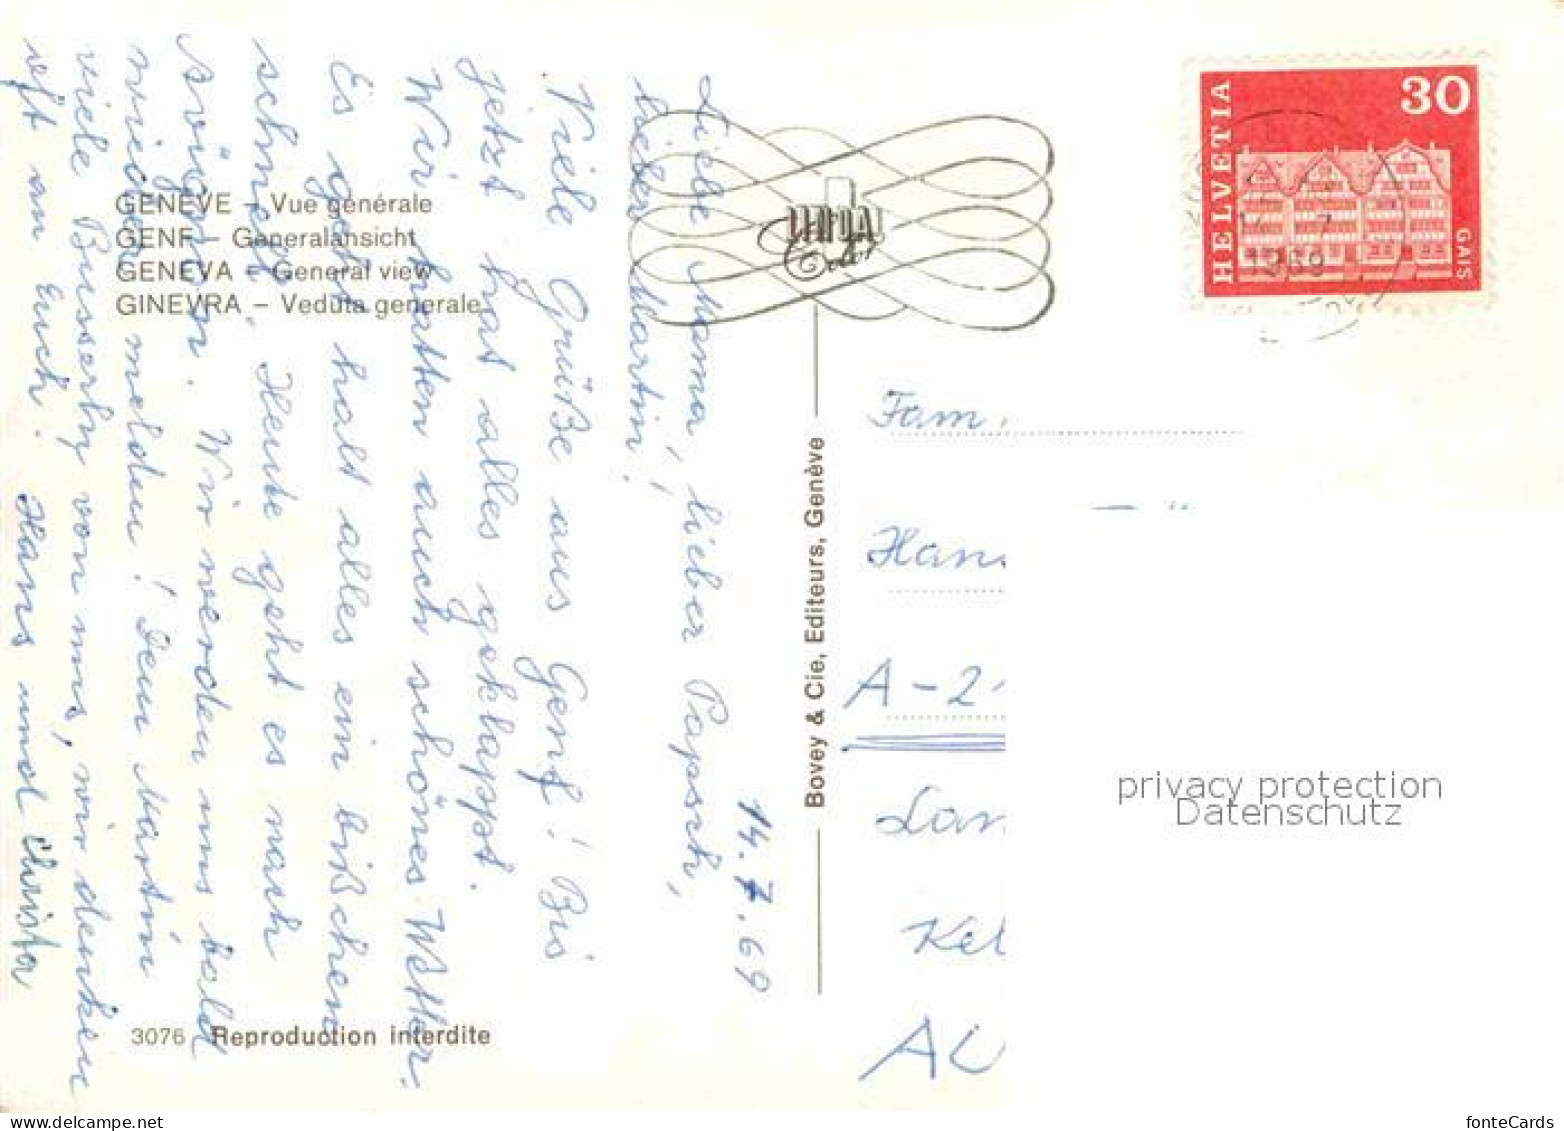 14.7.69
Liebe Mama, lieber Papsch,
lieber Martin!
Viele Grüße aus Genf! Bis
jetzt hat alles geklappt.
Wir hatten auch schönes Wetter.
Es geht halt alles ein bißchen
schnell. Heute geht es nach
Avignon. Wir werden uns bald
wieder melden! Dem Martin
viele Busserln von uns, wir denken
oft an Euch. Hans und Christa
GENÈVE – Vue générale
GENF – Generalansicht
GENEVA – General view
GINEVRA – Veduta generale
3076 Reproduction interdite
Bovey & Cie, Editeurs, Genève
Color
HELVETIA
30
GAIS
14
7
1969
Fam.
Han
A-2
Lan
Kel
AU
privacy protection
Datenschutz
fonteCards